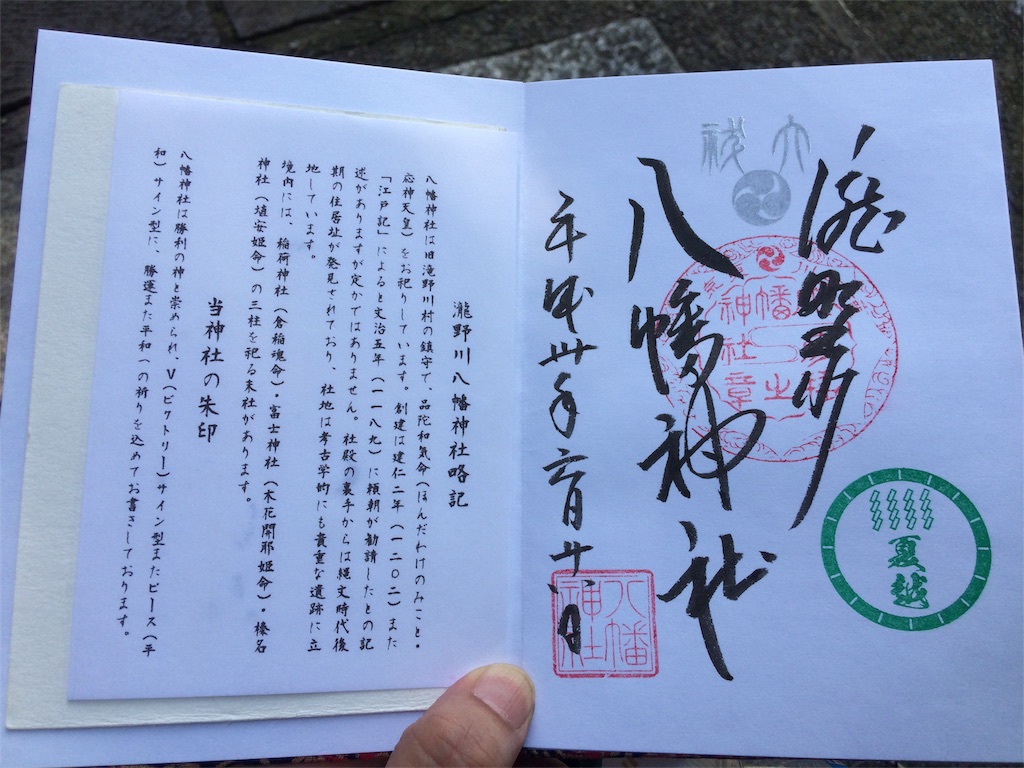 大祓
瀧野川
八幡神社
平成卅年六月廿八日
夏越
八幡神社
瀧野川八幡神社略記
八幡神社は旧滝野川村の鎮守で、品陀和気命（ほんだわけのみこと・
応神天皇）をお祀りしています。創建は建仁二年（一二〇二）また
「江戸記」によると文治五年（一一八九）に頼朝が勧請したとの記
述がありますが定かではありません。社殿の裏手からは縄文時代後
期の住居址が発見されており、社地は考古学的にも貴重な遺跡に立
地しています。
境内には、稲荷神（倉稲魂命）・富士神社（木花開耶姫命）・榛名
神社（埴安姫命）の三柱を祀る末社があります。
当神社の朱印
八幡神社は勝利の神と崇められ、V（ビクトリー）サイン型またピース（平
和）サイン型に、勝運また平和への祈りを込めてお書きしております。